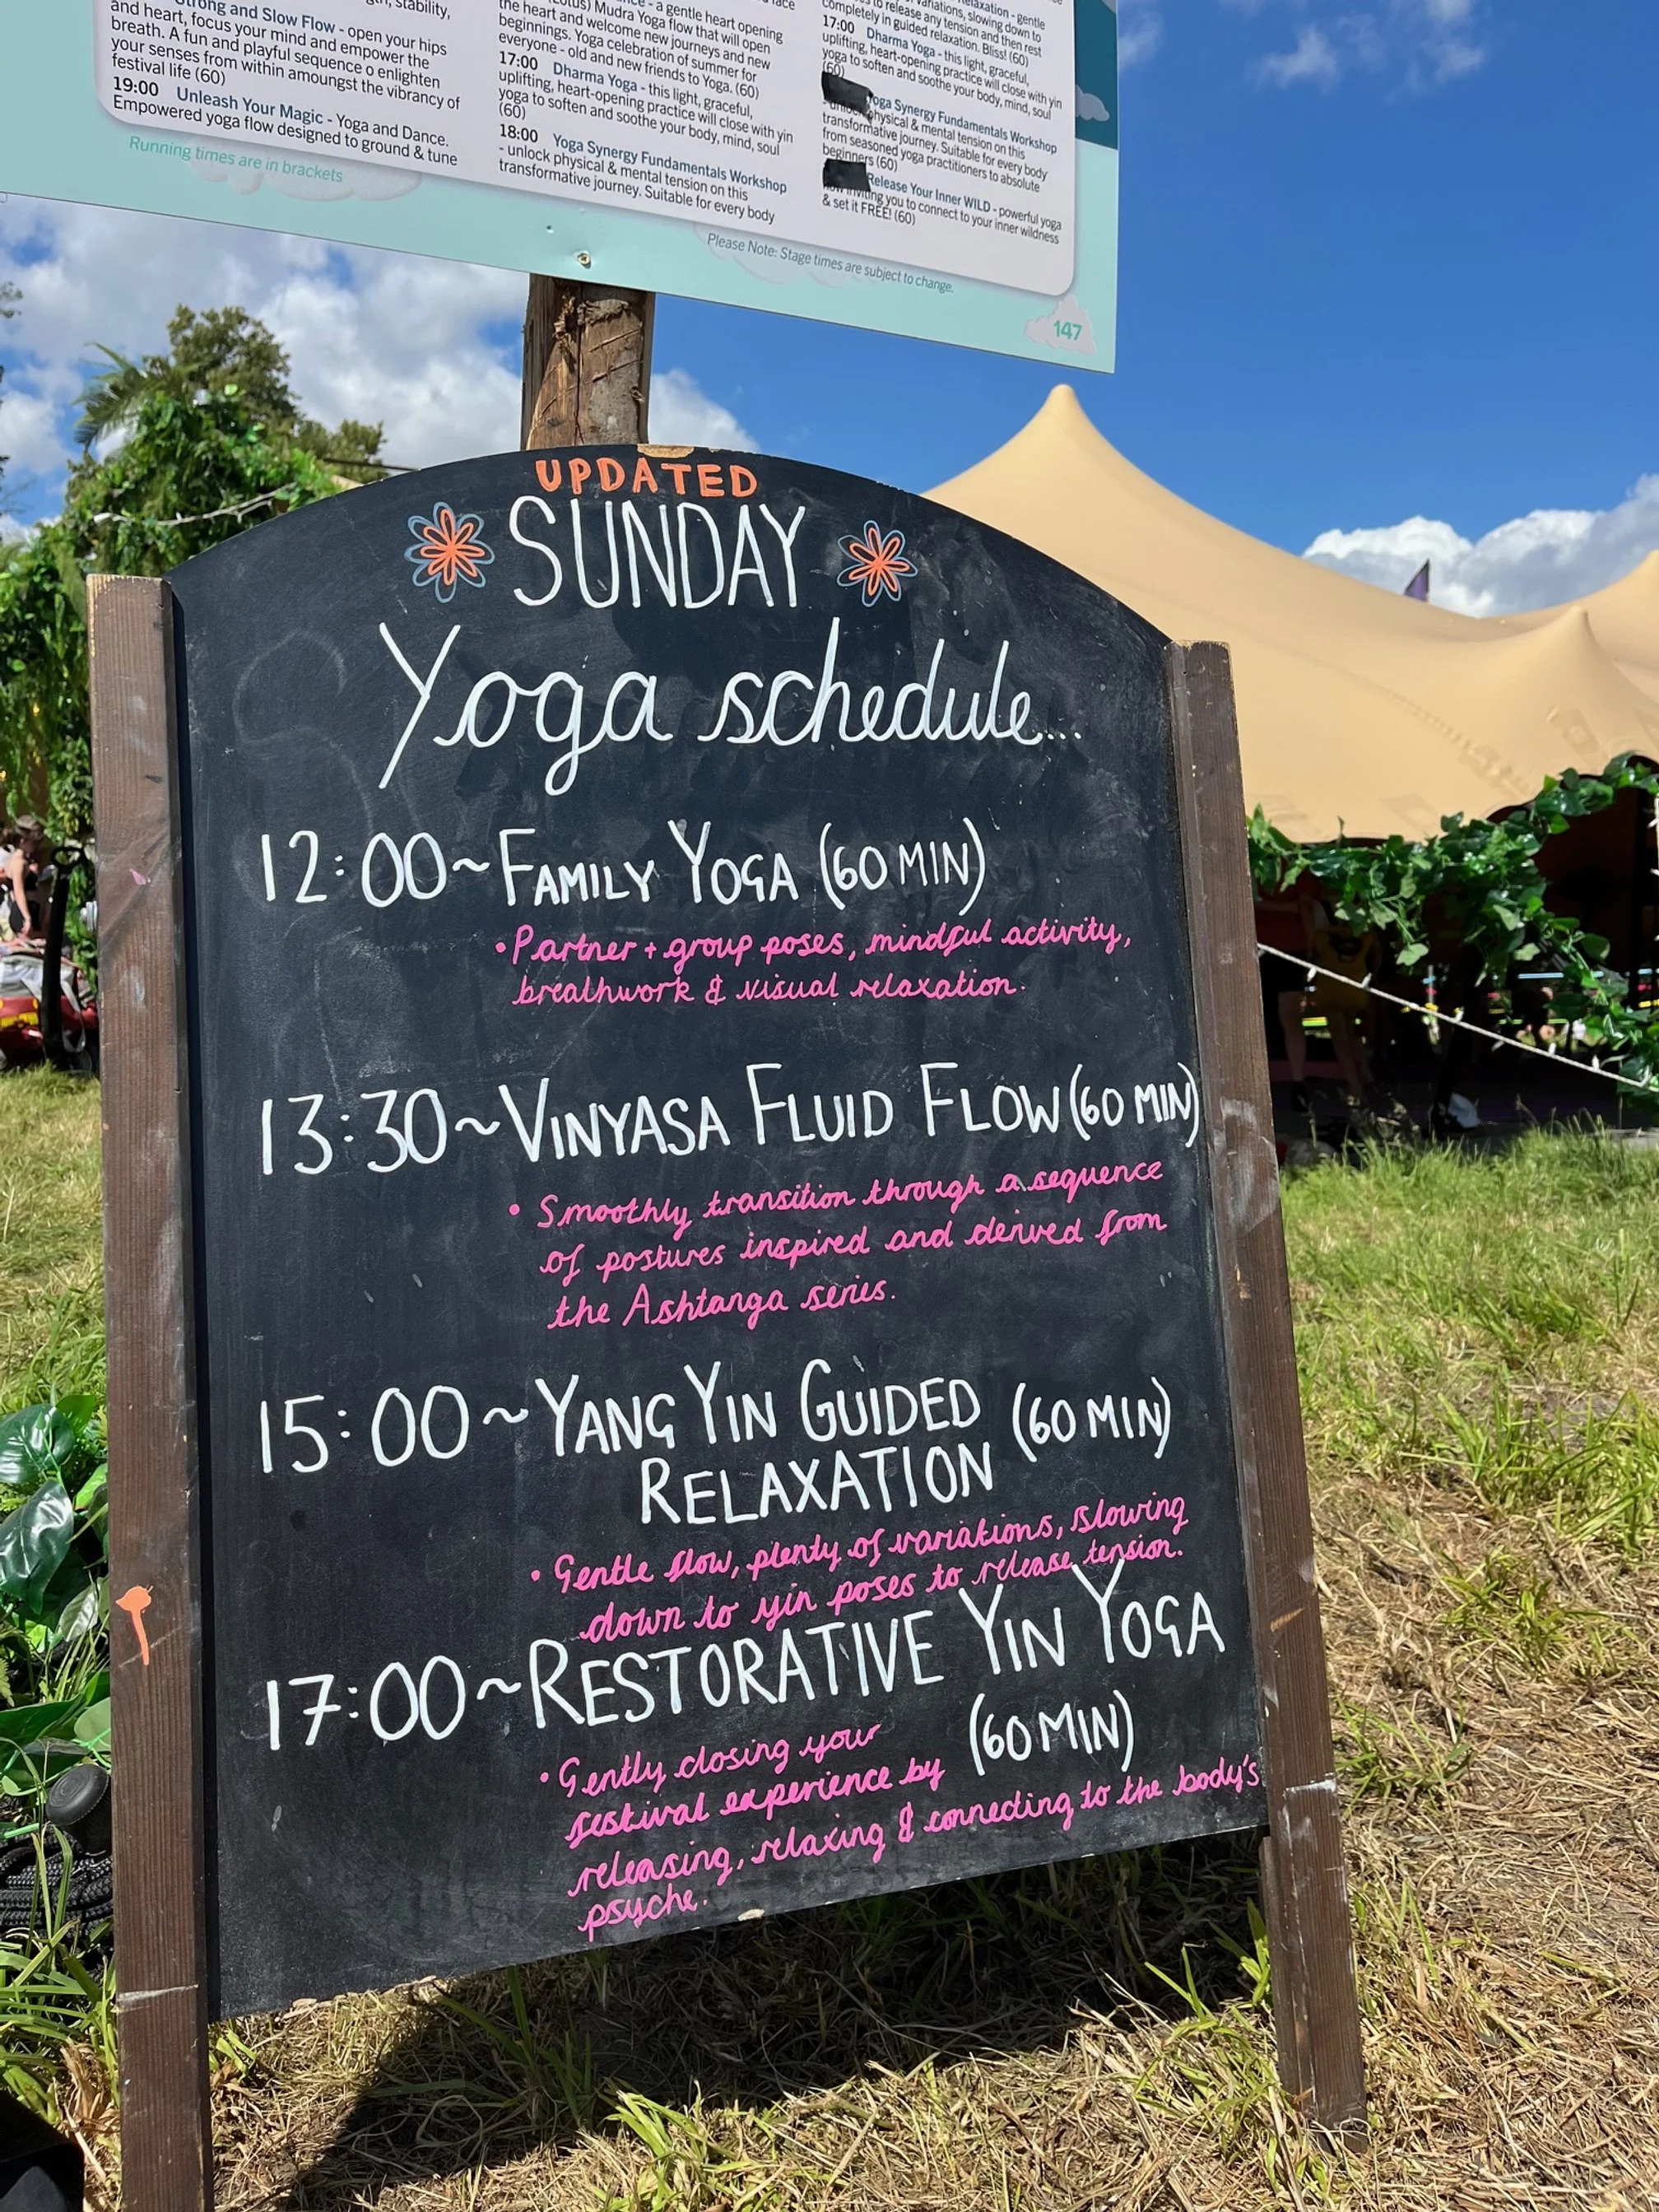 Strong and Slow Flow - open your hips
and heart, focus your mind and empower the
breath. A fun and playful sequence o enlighten
your senses from within amongst the vibrancy of
festival life (60)
19:00 Unleash Your Magic - Yoga and Dance.
Empowered yoga flow designed to ground & tune
Running times are in brackets
- a gentle heart opening
(Lotus) Mudra Yoga flow that will open
the heart and welcome new journeys and new
beginnings. Yoga celebration of summer for
everyone - old and new friends to Yoga. (60)
17:00 Dharma Yoga - this light, graceful,
uplifting, heart-opening practice will close with yin
yoga to soften and soothe your body, mind, soul
(60)
18:00 Yoga Synergy Fundamentals Workshop
- unlock physical & mental tension on this
transformative journey. Suitable for every body
Relaxation - gentle
variations, slowing down to
to release any tension and then rest
completely in guided relaxation. Bliss! (60)
17:00 Dharma Yoga - this light, graceful,
uplifting, heart-opening practice will close with yin
yoga to soften and soothe your body, mind, soul
(60)
Yoga Synergy Fundamentals Workshop
- unlock physical & mental tension on this
transformative journey. Suitable for every body
from seasoned yoga practitioners to absolute
beginners (60)
Release Your Inner WILD - powerful yoga
flow inviting you to connect to your inner wildness
& set it FREE! (60)
Please Note: Stage times are subject to change.
147
UPDATED
SUNDAY
Yoga schedule...
12:00 ~ FAMILY YOGA (60 MIN)
• Partner + group poses, mindful activity,
breathwork & visual relaxation.
13:30 ~ VINYASA FLUID FLOW (60 MIN)
• Smoothly transition through a sequence
of postures inspired and derived from
the Ashtanga series.
15:00 ~ YANG YIN GUIDED (60 MIN)
RELAXATION
• Gentle flow, plenty of variations, slowing
down to yin poses to release tension.
17:00 ~ RESTORATIVE YIN YOGA
(60 MIN)
• Gently closing your
festival experience by
releasing, relaxing & connecting to the body's
psyche.